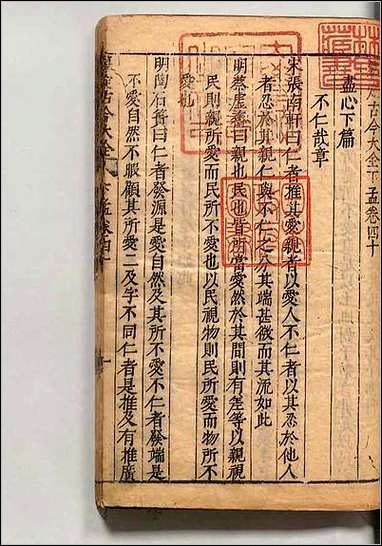 古今大全下孟卷四十
盡心下篇
不仁哉章
宋張南軒曰仁者推其愛親者以愛人不仁者以其忍於他人
者忍於其親仁與不仁之分其端甚微而其流如此
明蔡虛齋曰親也民也皆所當愛然於其間則有差等以親視
民則親所愛而民所不愛也以民視物則民所愛而物所不
愛也
明陶石簣曰仁者發源是愛自然及其所不愛不仁者發端是
不愛自然不暇顧其所愛二及字不同仁者是推及有推廣